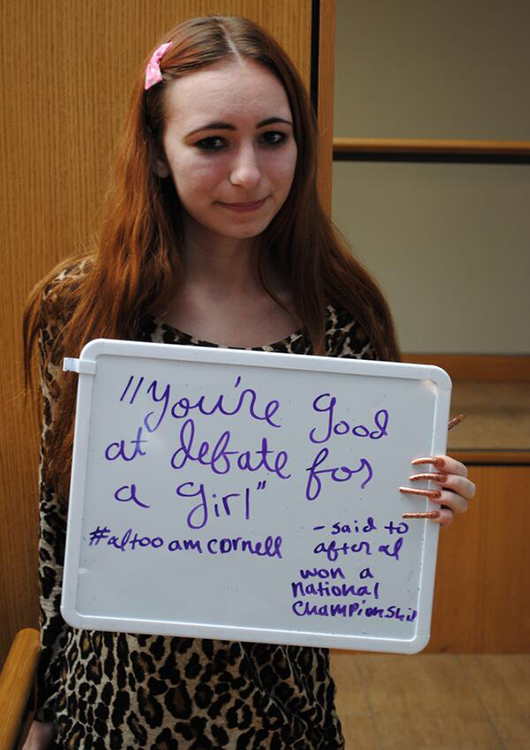 "You're good
at debate for
a girl"
#aItooamcornell
- said to
after I
won a
national
championship